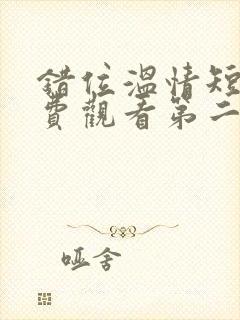 錯位溫情短
費觀看第二
哑舍